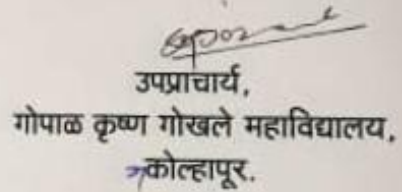 उपप्राचार्य,
गोपाळ कृष्ण गोखले महाविद्यालय,
कोल्हापूर.